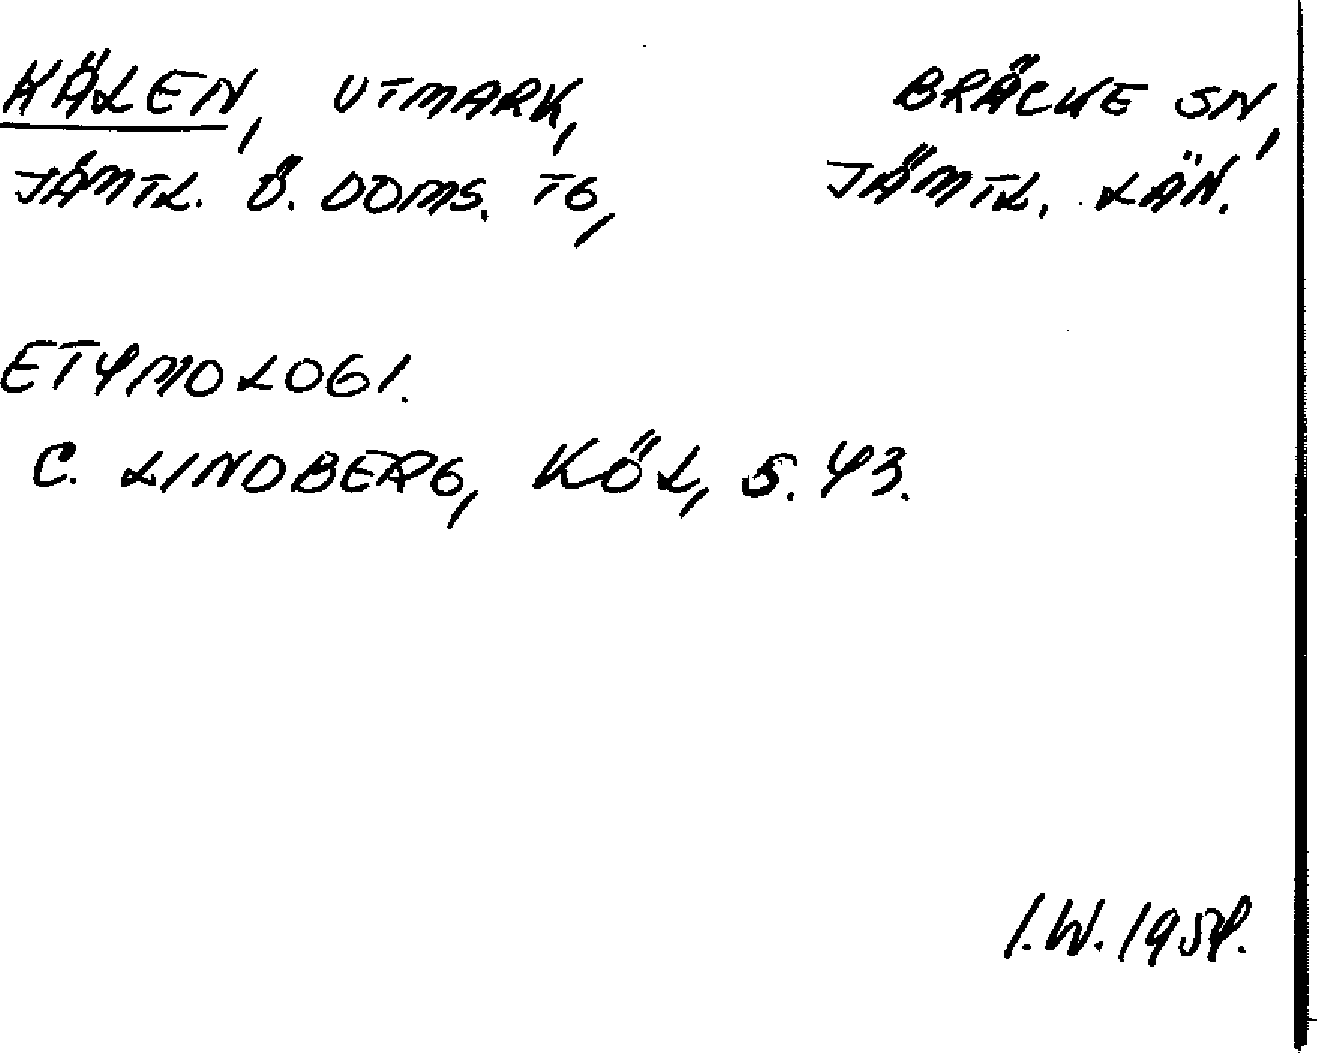 KÄLEN, UTMARK, BRÄCKE SN,
JÄMTL. Ö. DOMS. TG, JÄMTL. LÄN.
ETYMOLOGI.
C. LINDBERG, KÖL, S. 43.
I.W. 1959.